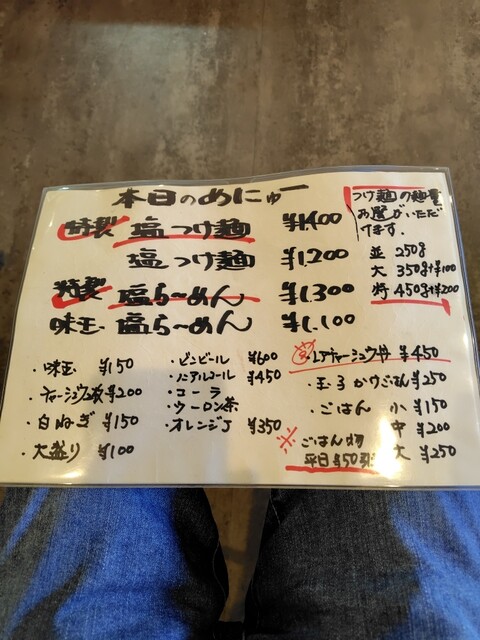 本日のめにゅー
特製 塩つけ麺 ¥1,400
塩つけ麺 ¥1,200
特製 塩らーめん ¥1,300
味玉 塩らーめん ¥1,100
つけ麺の麺量
お選びいただ
けます。
並 250g
大 350g+¥100
特 450g+¥200
・味玉 ¥150
・チャーシュウ2枚 ¥200
・白ねぎ ¥150
・大盛り ¥100
・ビンビール ¥600
・ノンアルコール ¥450
・コーラ
・ウーロン茶
・オレンジJ ¥350
レアチャーシュウ丼 ¥450
・玉子かけごはん ¥250
・ごはん 小 ¥150
中 ¥200
大 ¥250
※ごはん物
平日¥50引